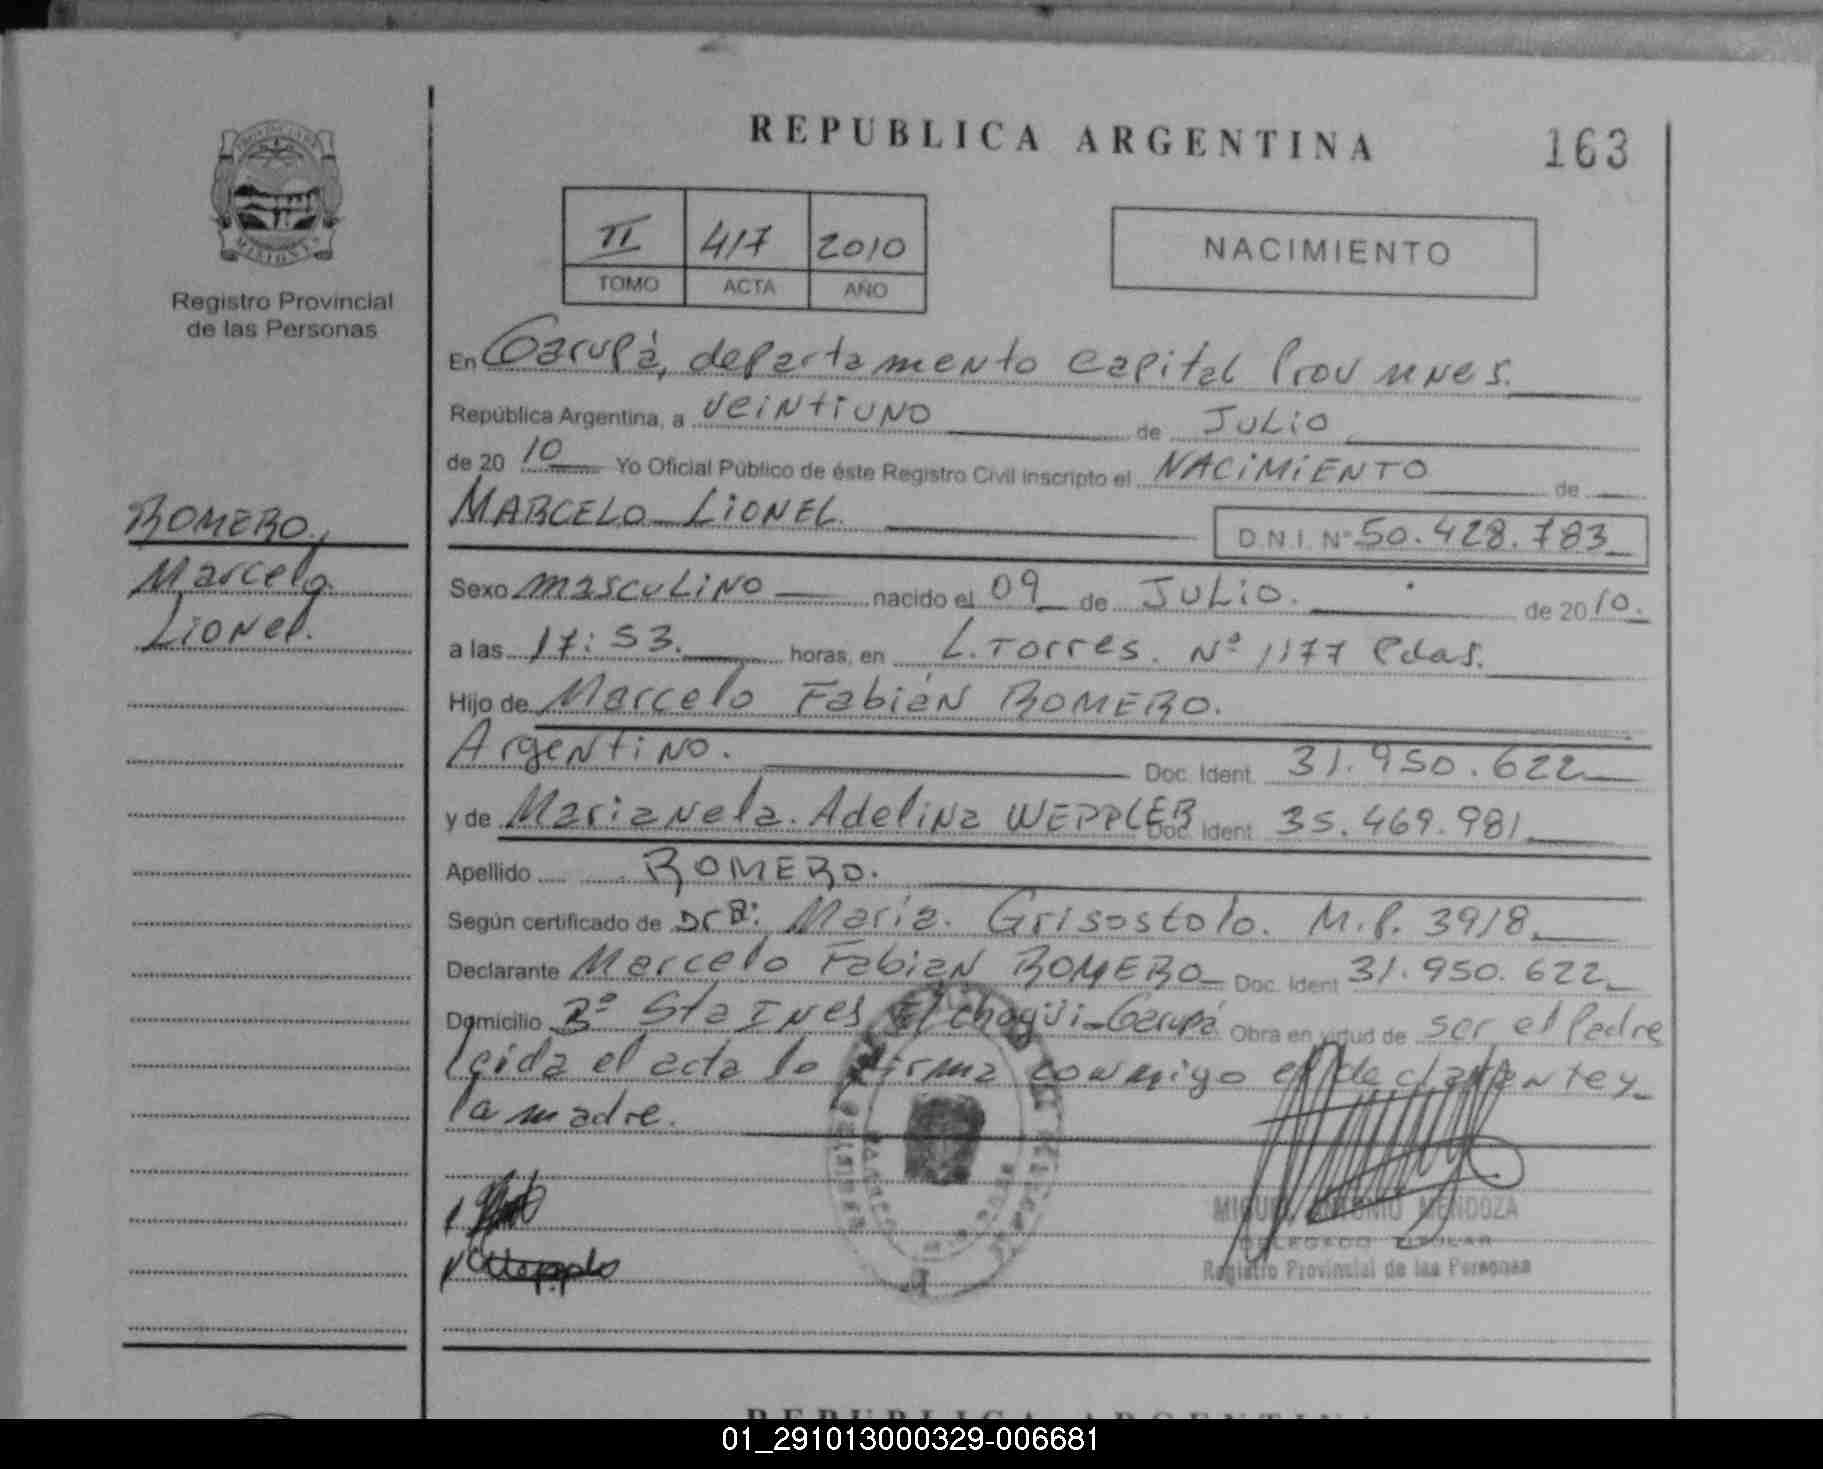 REPUBLICA ARGENTINA
163
PROVINCIA DE
MISIONES
Registro Provincial
de las Personas
II 417 2010
TOMO ACTA AÑO
NACIMIENTO
En Garupá, departamento Capital Prov Mnes.
República Argentina, a veintiuno de Julio
de 20 10 Yo Oficial Público de éste Registro Civil inscripto el NACIMIENTO de
MARCELO LIONEL. D.N.I. Nº 50.428.783
ROMERO,
Marcelo
Lionel.
Sexo masculino nacido el 09 de Julio. de 20 10.
a las 17:53. horas, en L. Torres. Nº 1177 Pdas.
Hijo de Marcelo Fabián ROMERO.
Argentino. Doc. Ident. 31.950.622
y de Marianela. Adelina WEPPLER Doc. Ident 35.469.981
Apellido ROMERO.
Según certificado de Dra: María. Grisostolo. M.P. 3918
Declarante Marcelo Fabián ROMERO Doc. Ident 31.950.622
Domicilio Bº Sta Ines Garupá Obra en virtud de ser el Padre
leida el acta lo firma conmigo el declarante y
la madre.
MIGUEL ANTONIO MENDOZA
DELEGADO TITULAR
Registro Provincial de las Personas
REPUBLICA ARGENTINA
01_291013000329-006681